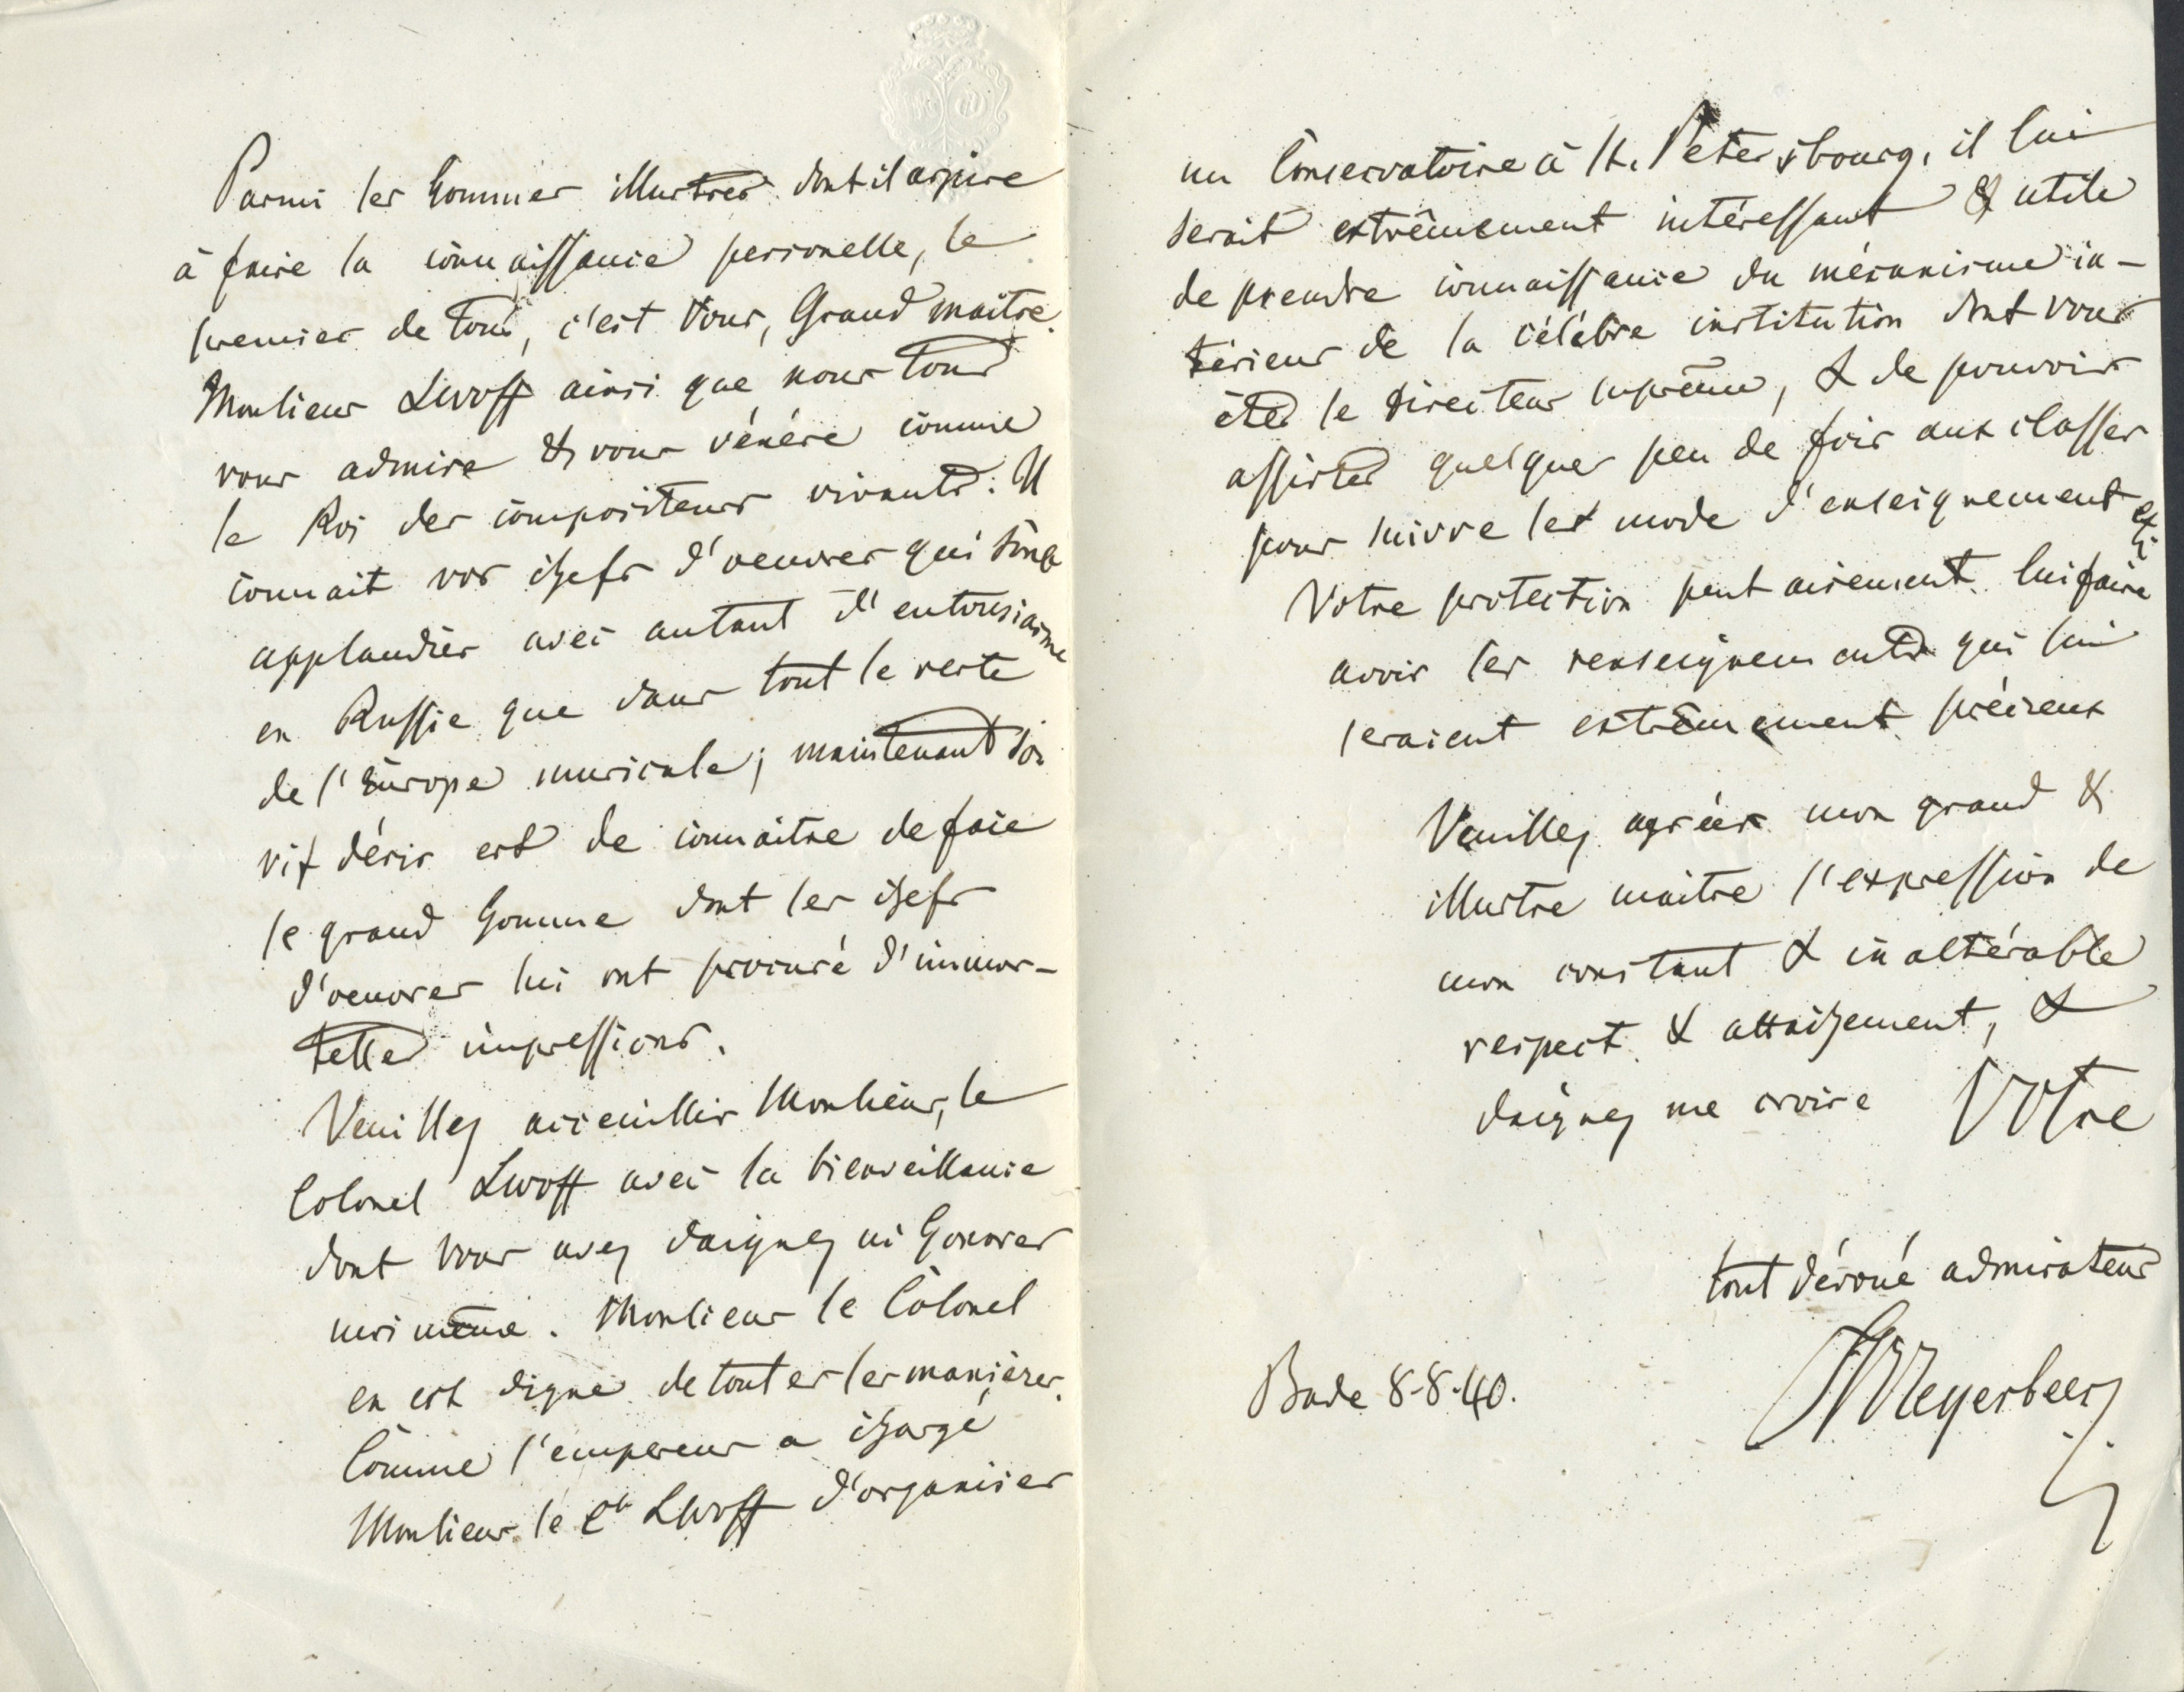 Parmi les hommes illustres dont il aspire
à faire la connaissance personelle, le
premier de tous, c'est Vous, Grand maitre.
Monsieur Lwoff ainsi que nous tous
vous admire & vous vénére comme
le Roi des compositeurs vivants. Il
connait vos chefs d'oeuvres qui sont
applaudies avec autant d'entousiasme
en Russie que dans tout le reste
de l'Europe musicale; maintenant son
vif désir est de connaitre de face
le grand homme dont les chefs
d'oeuvres lui ont procuré d'immor-
telles impressions.
Veuillez acceuillir Monsieur, le
Colonel Lwoff avec la bienveillance
dont vous avez daignez m'honorer
moi même. Monsieur le Colonel
en est digne de toutes les manières.
Comme l'empereur a chargé
Monsieur le Cl Lwoff d'organiser
un Conservatoire à St. Petersbourg, il lui
serait extrêmement intéressant & utile
de prendre connaissance du mécanisme in-
térieur de la célébre institution dont vous
êtes le directeur suprême, & de pouvoir
assister quelques peu de fois aux classes
pour suivre les mode d'enseignement etc.
Votre protection peut aisement lui faire
avoir les renseignements qui lui
seraient extrêmement précieux
Veuillez agréer mon grand &
illustre maitre l'expression de
mon constant & inaltérable
respect & attachement, &
daignez me croire Votre
tout dévoué admirateur
Meyerbeer
Bade 8-8-40.